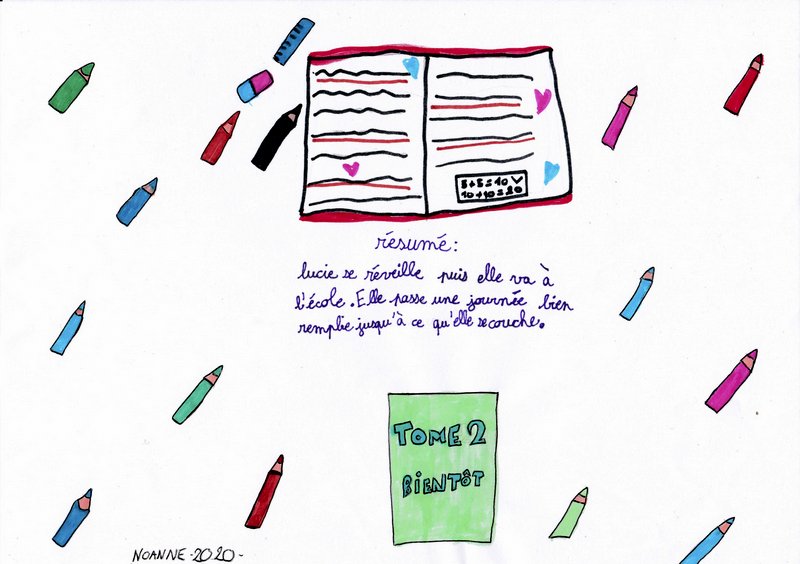 5+5=10
10+10=20
résumé:
lucie se réveille puis elle va à
l'école. Elle passe une journée bien
remplie jusqu'à ce qu'elle se couche.
TOME 2
BIENTÔT
NOANNE-2020-